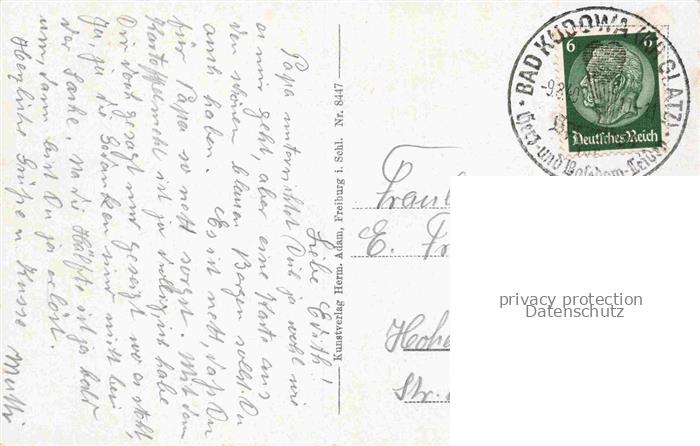 Liebe Edith!
Papa unterrichtet Dich ja wohl wie
es mir geht, aber eine Karte aus
den schönen blauen Bergen sollst Du
auch haben. Es ist nett, daß Du
für Papa so nett sorgst. Mit dem
Kartoffelmehl ist ja drollig ich habe
Dir doch gesagt und gezeigt wo es steht,
ja, ja die Gedanken sind nicht bei
der Sache. Na die Hälfte ist ja bald
um, dann bist Du ja erlöst.
Herzliche Grüße u Küsse Mutti
Kunstverlag Herm. Adam, Freiburg i. Schl. Nr. 8447
BAD KUDOWA (Bz GLATZ)
-9.8.
Herz- und Basedow-
6 6
Deutsches Reich
Fräul
E. Fr
Hohe
Str.
privacy protection
Datenschutz